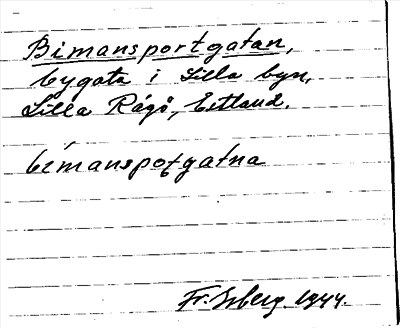 Bimansportgatan,
bygata i Lilla byn,
Lilla Rågö, Estland.
bimanspoꭍgatna
Fr. Isberg 1944.